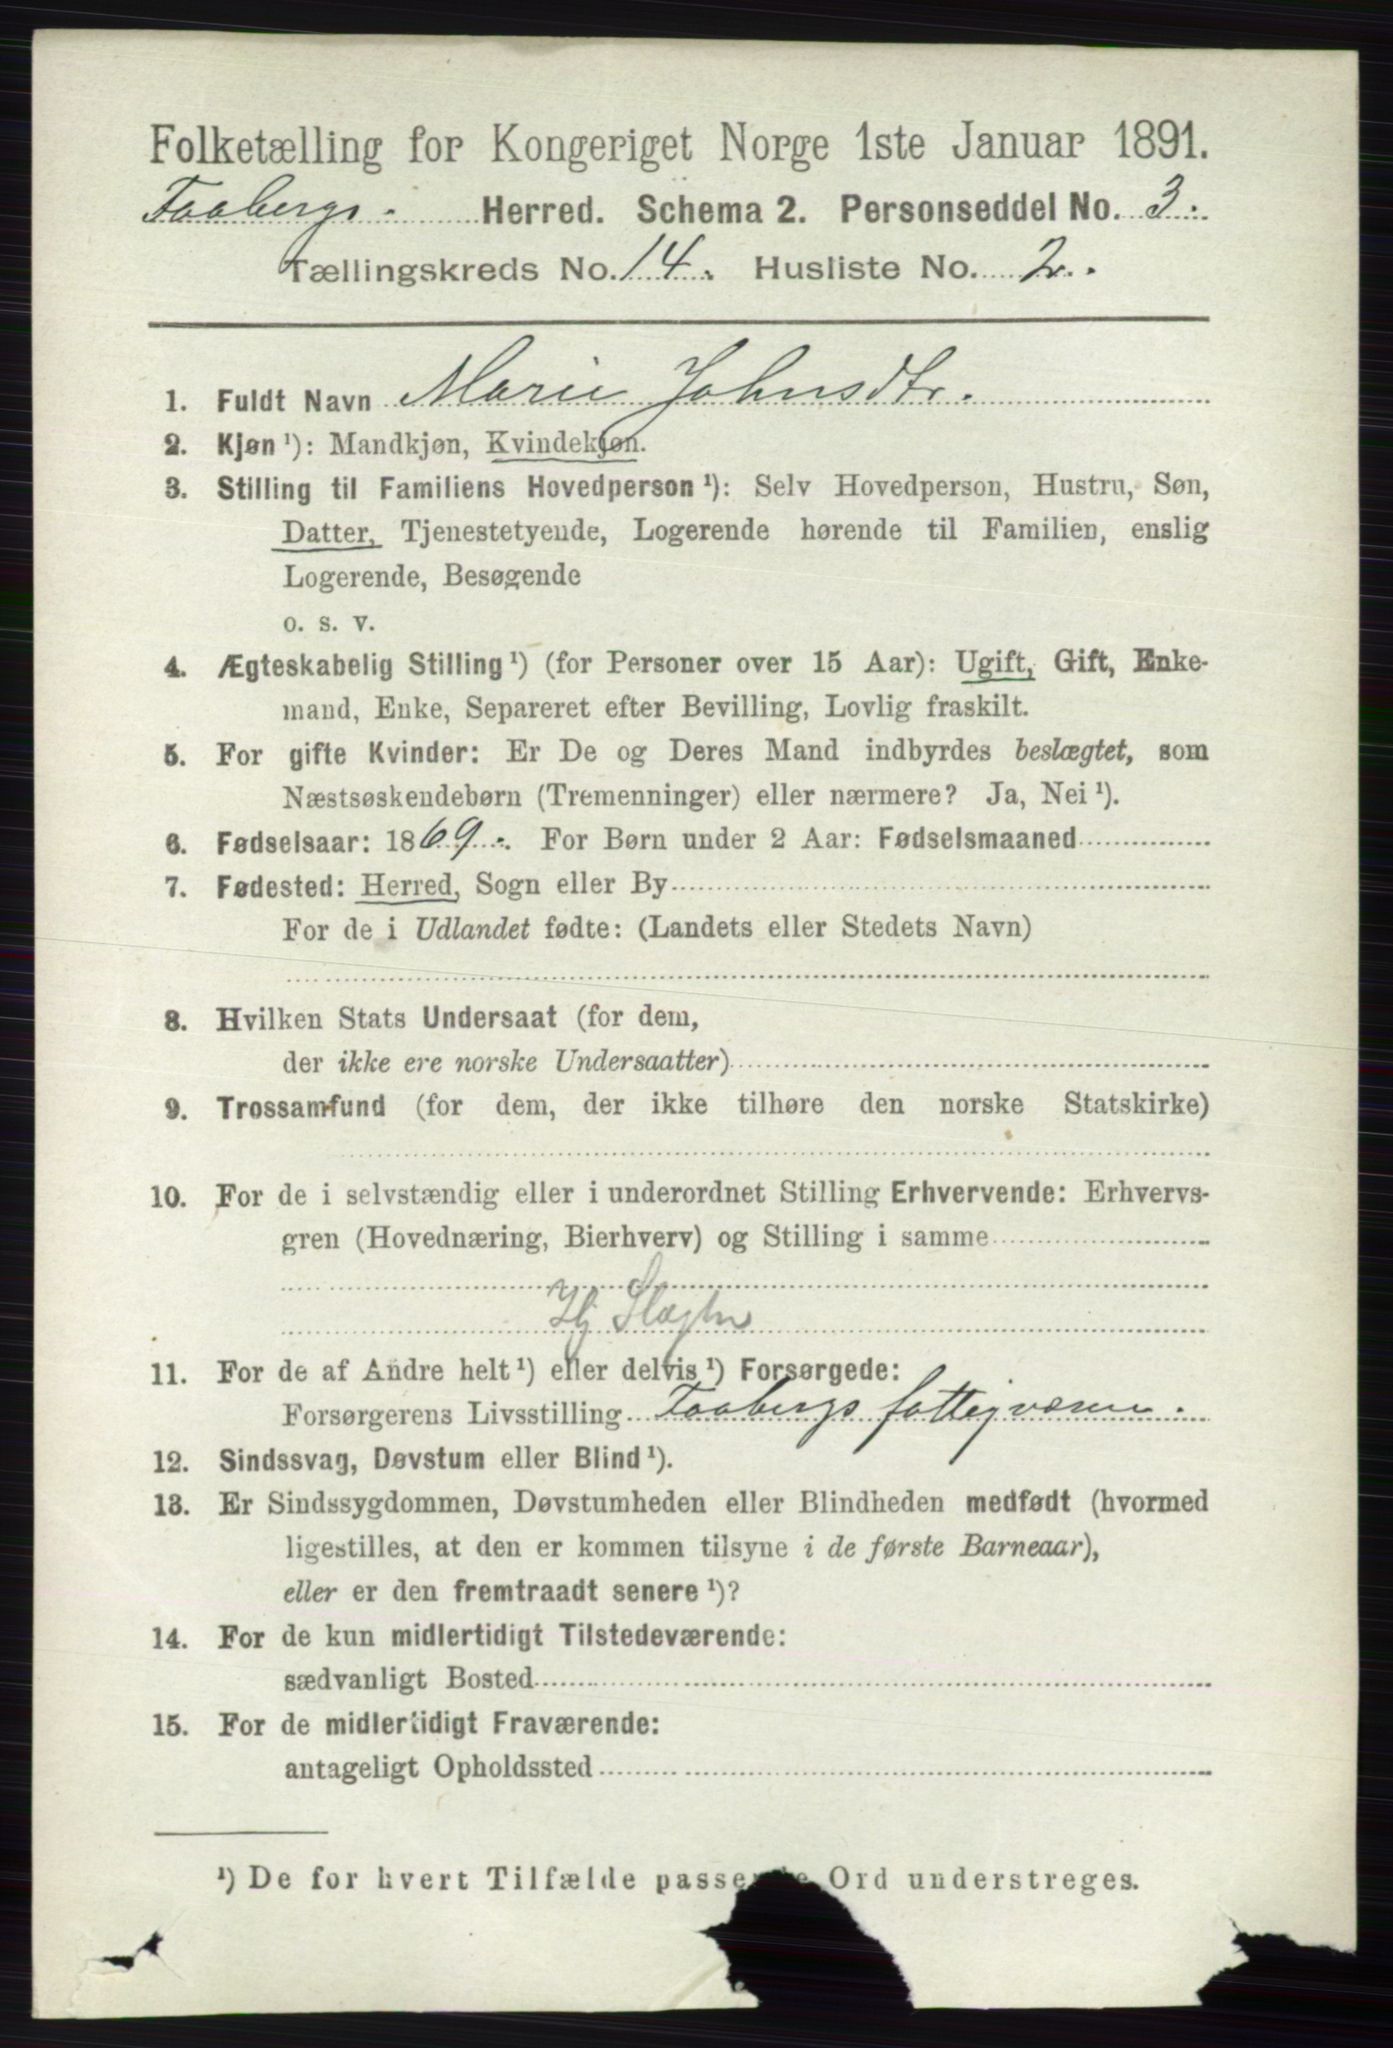 Folketælling for Kongeriget Norge 1ste Januar 1891.
Faabergs. Herred. Schema 2. Personseddel No. 3.
Tællingskreds No. 14. Husliste No. 2.
1. Fuldt Navn Marie Johnsdtr.
2. Kjøn ¹): Mandkjøn, Kvindekjøn.
3. Stilling til Familiens Hovedperson ¹): Selv Hovedperson, Hustru, Søn,
Datter, Tjenestetyende, Logerende hørende til Familien, enslig
Logerende, Besøgende
o. s. v.
4. Ægteskabelig Stilling ¹) (for Personer over 15 Aar): Ugift, Gift, Enke-
mand, Enke, Separeret efter Bevilling, Lovlig fraskilt.
5. For gifte Kvinder: Er De og Deres Mand indbyrdes beslægtet, som
Næstsøskendebørn (Tremenninger) eller nærmere? Ja, Nei ¹).
6. Fødselsaar: 1869. For Børn under 2 Aar: Fødselsmaaned
7. Fødested: Herred, Sogn eller By
For de i Udlandet fødte: (Landets eller Stedets Navn)
8. Hvilken Stats Undersaat (for dem,
der ikke ere norske Undersaatter)
9. Trossamfund (for dem, der ikke tilhøre den norske Statskirke)
10. For de i selvstændig eller i underordnet Stilling Erhvervende: Erhvervs-
gren (Hovednæring, Bierhverv) og Stilling i samme
11. For de af Andre helt ¹) eller delvis ¹) Forsørgede:
Forsørgerens Livsstilling Faabergs fattigvæsen.
12. Sindssvag, Døvstum eller Blind ¹).
13. Er Sindssygdommen, Døvstumheden eller Blindheden medfødt (hvormed
ligestilles, at den er kommen tilsyne i de første Barneaar),
eller er den fremtraadt senere ¹)?
14. For de kun midlertidigt Tilstedeværende:
sædvanligt Bosted
15. For de midlertidigt Fraværende:
antageligt Opholdssted
¹) De for hvert Tilfælde passende Ord understreges.